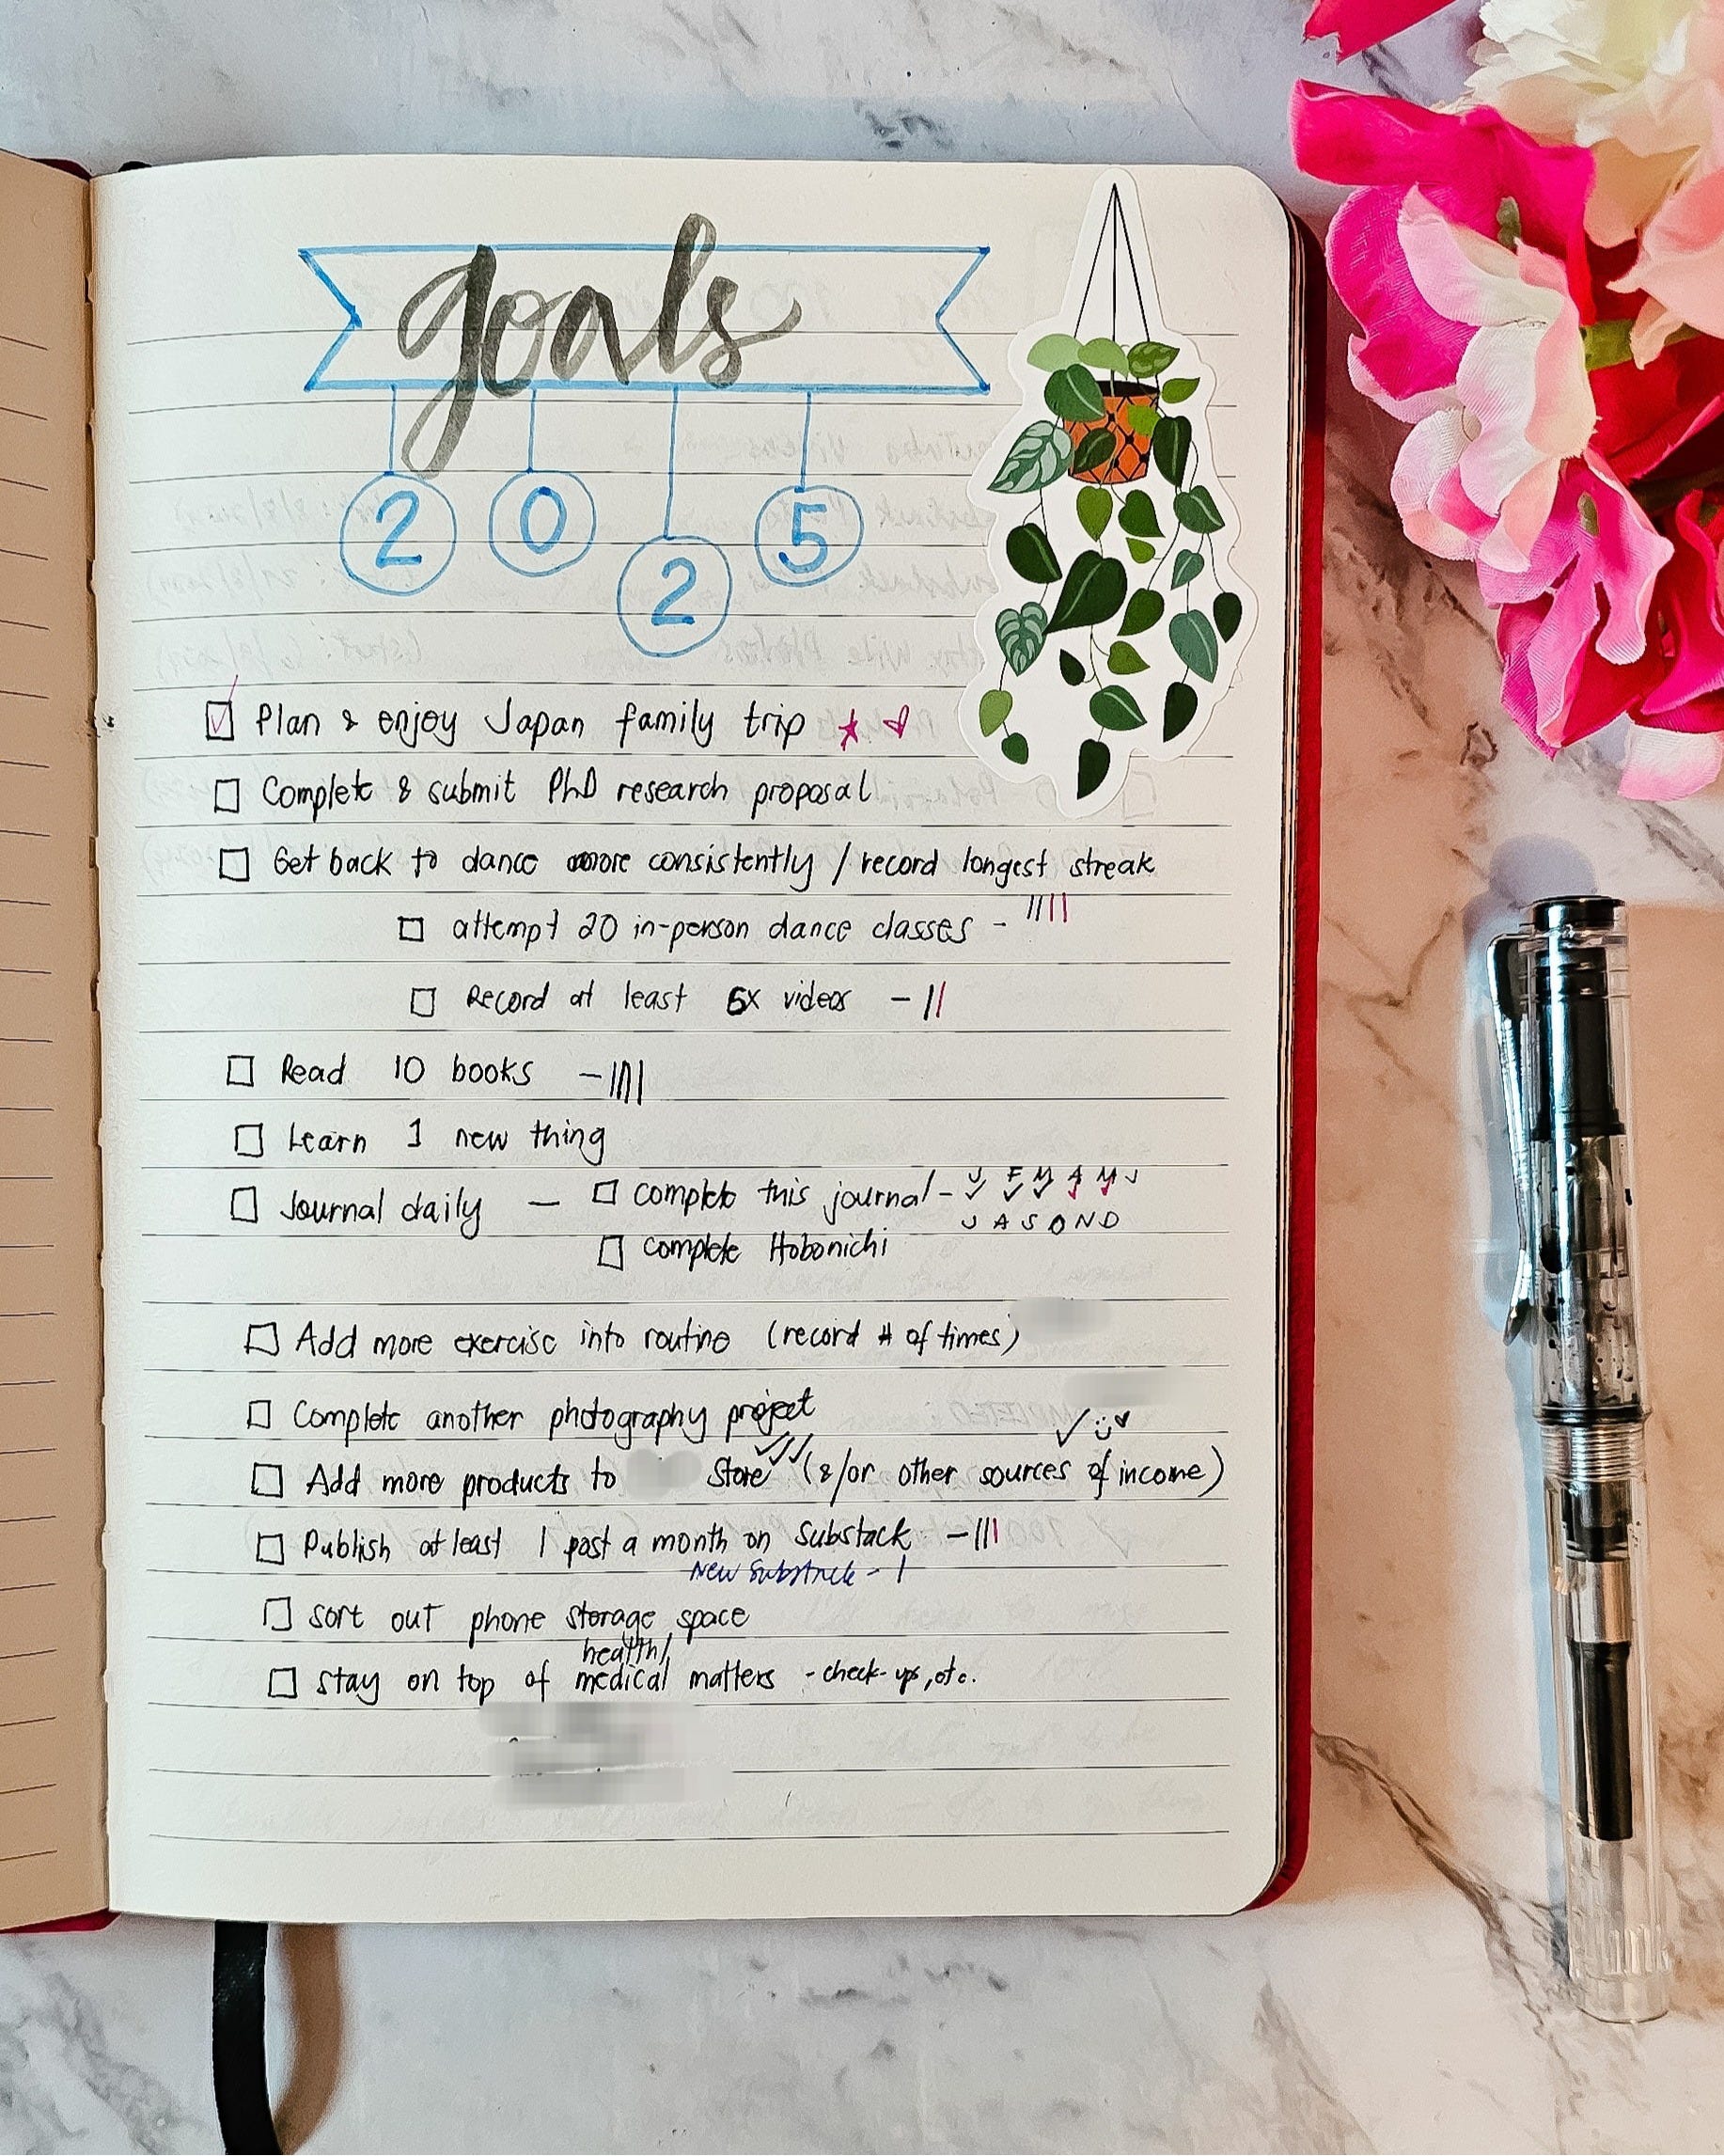 goals
2 0 2 5
Plan & enjoy Japan family trip
Complete & submit PhD research proposal
Get back to dance more consistently / record longest streak
attempt 20 in-person dance classes -
Record at least 6x videos -
Read 10 books -
Learn 1 new thing
Journal daily — complete this journal - J F M A M J
J A S O N D
complete Hobonichi
Add more exercise into routine (record # of times)
Complete another photography project
Add more products to Store (&/or other sources of income)
Publish at least 1 post a month on Substack -
New Substack - 1
sort out phone storage space
health/
stay on top of medical matters - check-ups, etc.